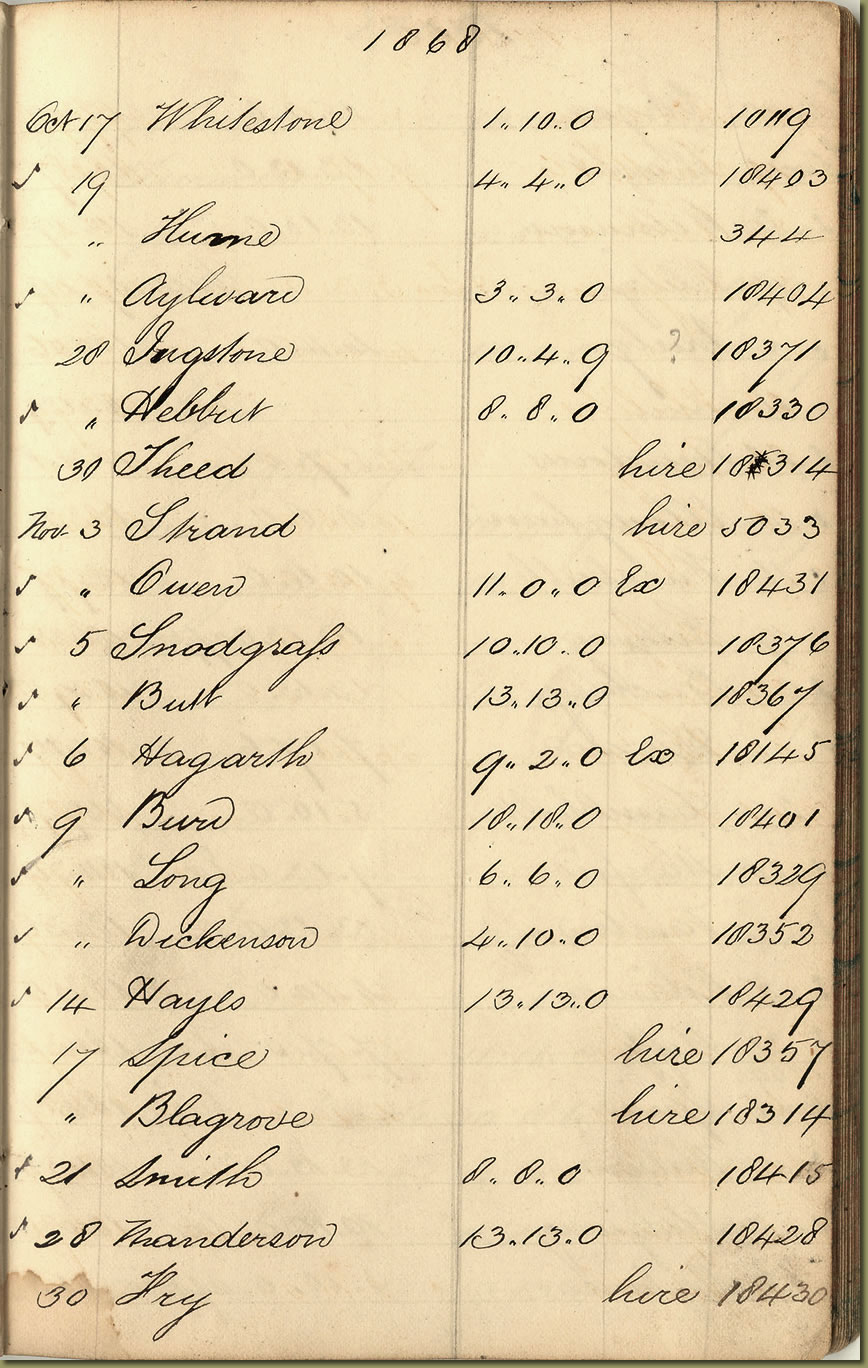 1868
Oct 17 Whitestone 1.. 10.. 0 10119
✓ 19 4.. 4.. 0 18403
" Hume 344
✓ " Aylward 3.. 3.. 0 18404
28 Ingstone 10.. 4.. 9 ? 18371
✓ " Hebbut 8.. 8.. 0 18330
30 Theed hire 18314
Nov 3 Strand hire 5033
✓ " Owen 11.. 0.. 0 Ex 18431
✓ 5 Snodgraſs 10.. 10.. 0 18376
✓ " Butt 13.. 13.. 0 18367
✓ 6 Hagarth 9.. 2.. 0 Ex 18145
✓ 9 Burd 18.. 18.. 0 18401
✓ " Long 6.. 6.. 0 18329
✓ " Dickenson 4.. 10.. 0 18352
✓ 14 Hayes 13.. 13.. 0 18429
17 Spice hire 18357
" Blagrove hire 18314
✓ 21 Smith 8.. 8.. 0 18415
✓ 28 Manderson 13.. 13.. 0 18428
30 Fry hire 18430